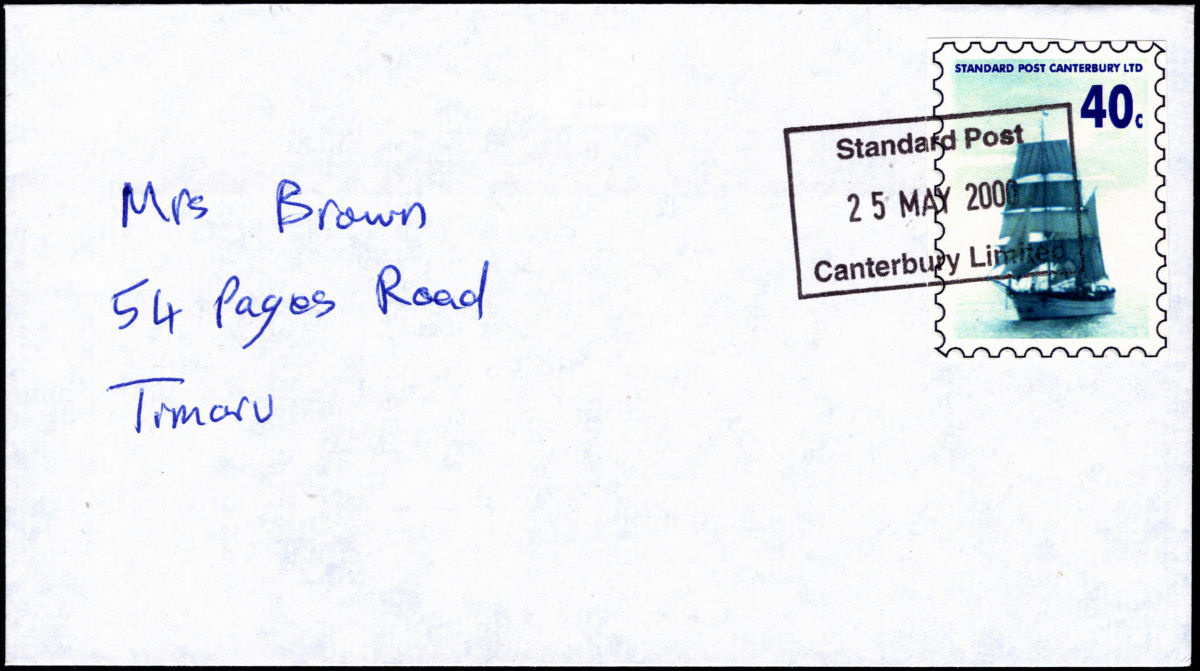 STANDARD POST CANTERBURY LTD
40c
Standard Post
25 MAY 2000
Canterbury Limited
Mrs Brown
54 Pages Road
Timaru